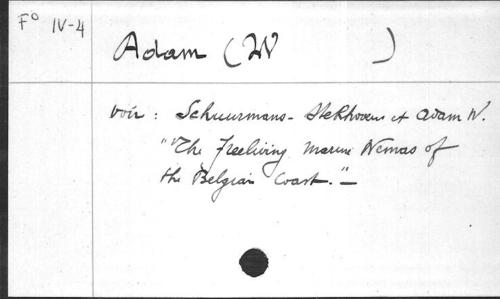 F° IV-4
Adam (W )
voir : Schuurmans-Stekhoven et Adam W.
"The Freeliving Marine Nemas of
the Belgian Coast."-